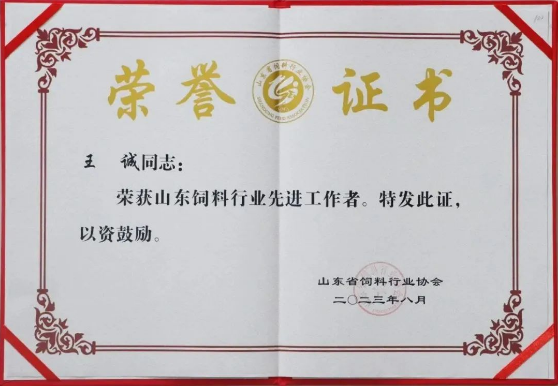 荣誉证书
王 诚同志：
荣获山东饲料行业先进工作者。特发此证，
以资鼓励。
山东省饲料行业协会
二〇二三年八月